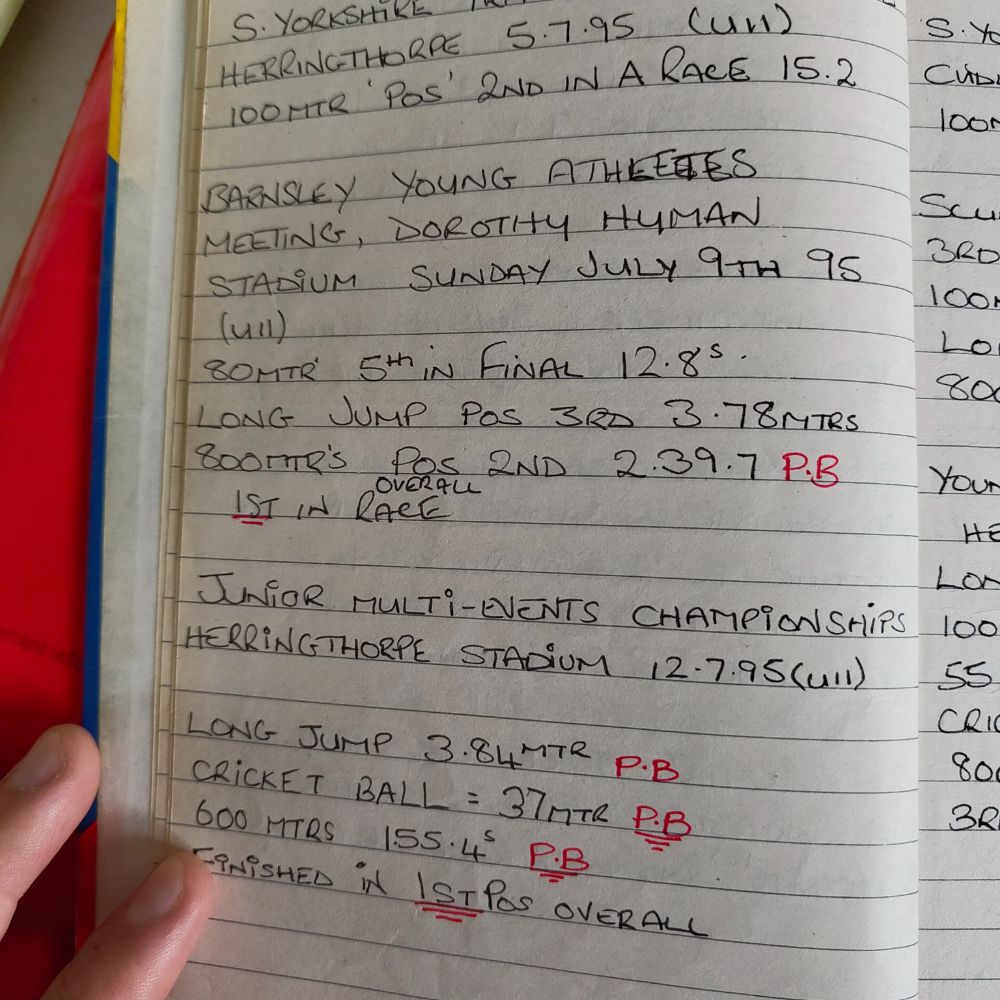 S. YORKSHIRE
HERRINGTHORPE 5.7.95 (U11)
100 MTR 'POS' 2ND IN A RACE 15.2
BARNSLEY YOUNG ATHLETES
MEETING, DOROTHY HYMAN
STADIUM SUNDAY JULY 9TH 95
(U11)
80MTR 5th IN FINAL 12.8s.
LONG JUMP POS 3RD 3.78MTRS
800MTR'S POS 2ND 2.39.7 P.B
OVERALL
1ST IN RACE
JUNIOR MULTI-EVENTS CHAMPIONSHIPS
HERRINGTHORPE STADIUM 12.7.95(U11)
LONG JUMP 3.84MTR P.B
CRICKET BALL = 37MTR P.B
600 MTRS 1.55.4s P.B
FINISHED IN 1ST POS OVERALL
S. YO
100M
3RD
100M
LO
800
YOUN
HE
LON
100
55
CRIC
800
3R